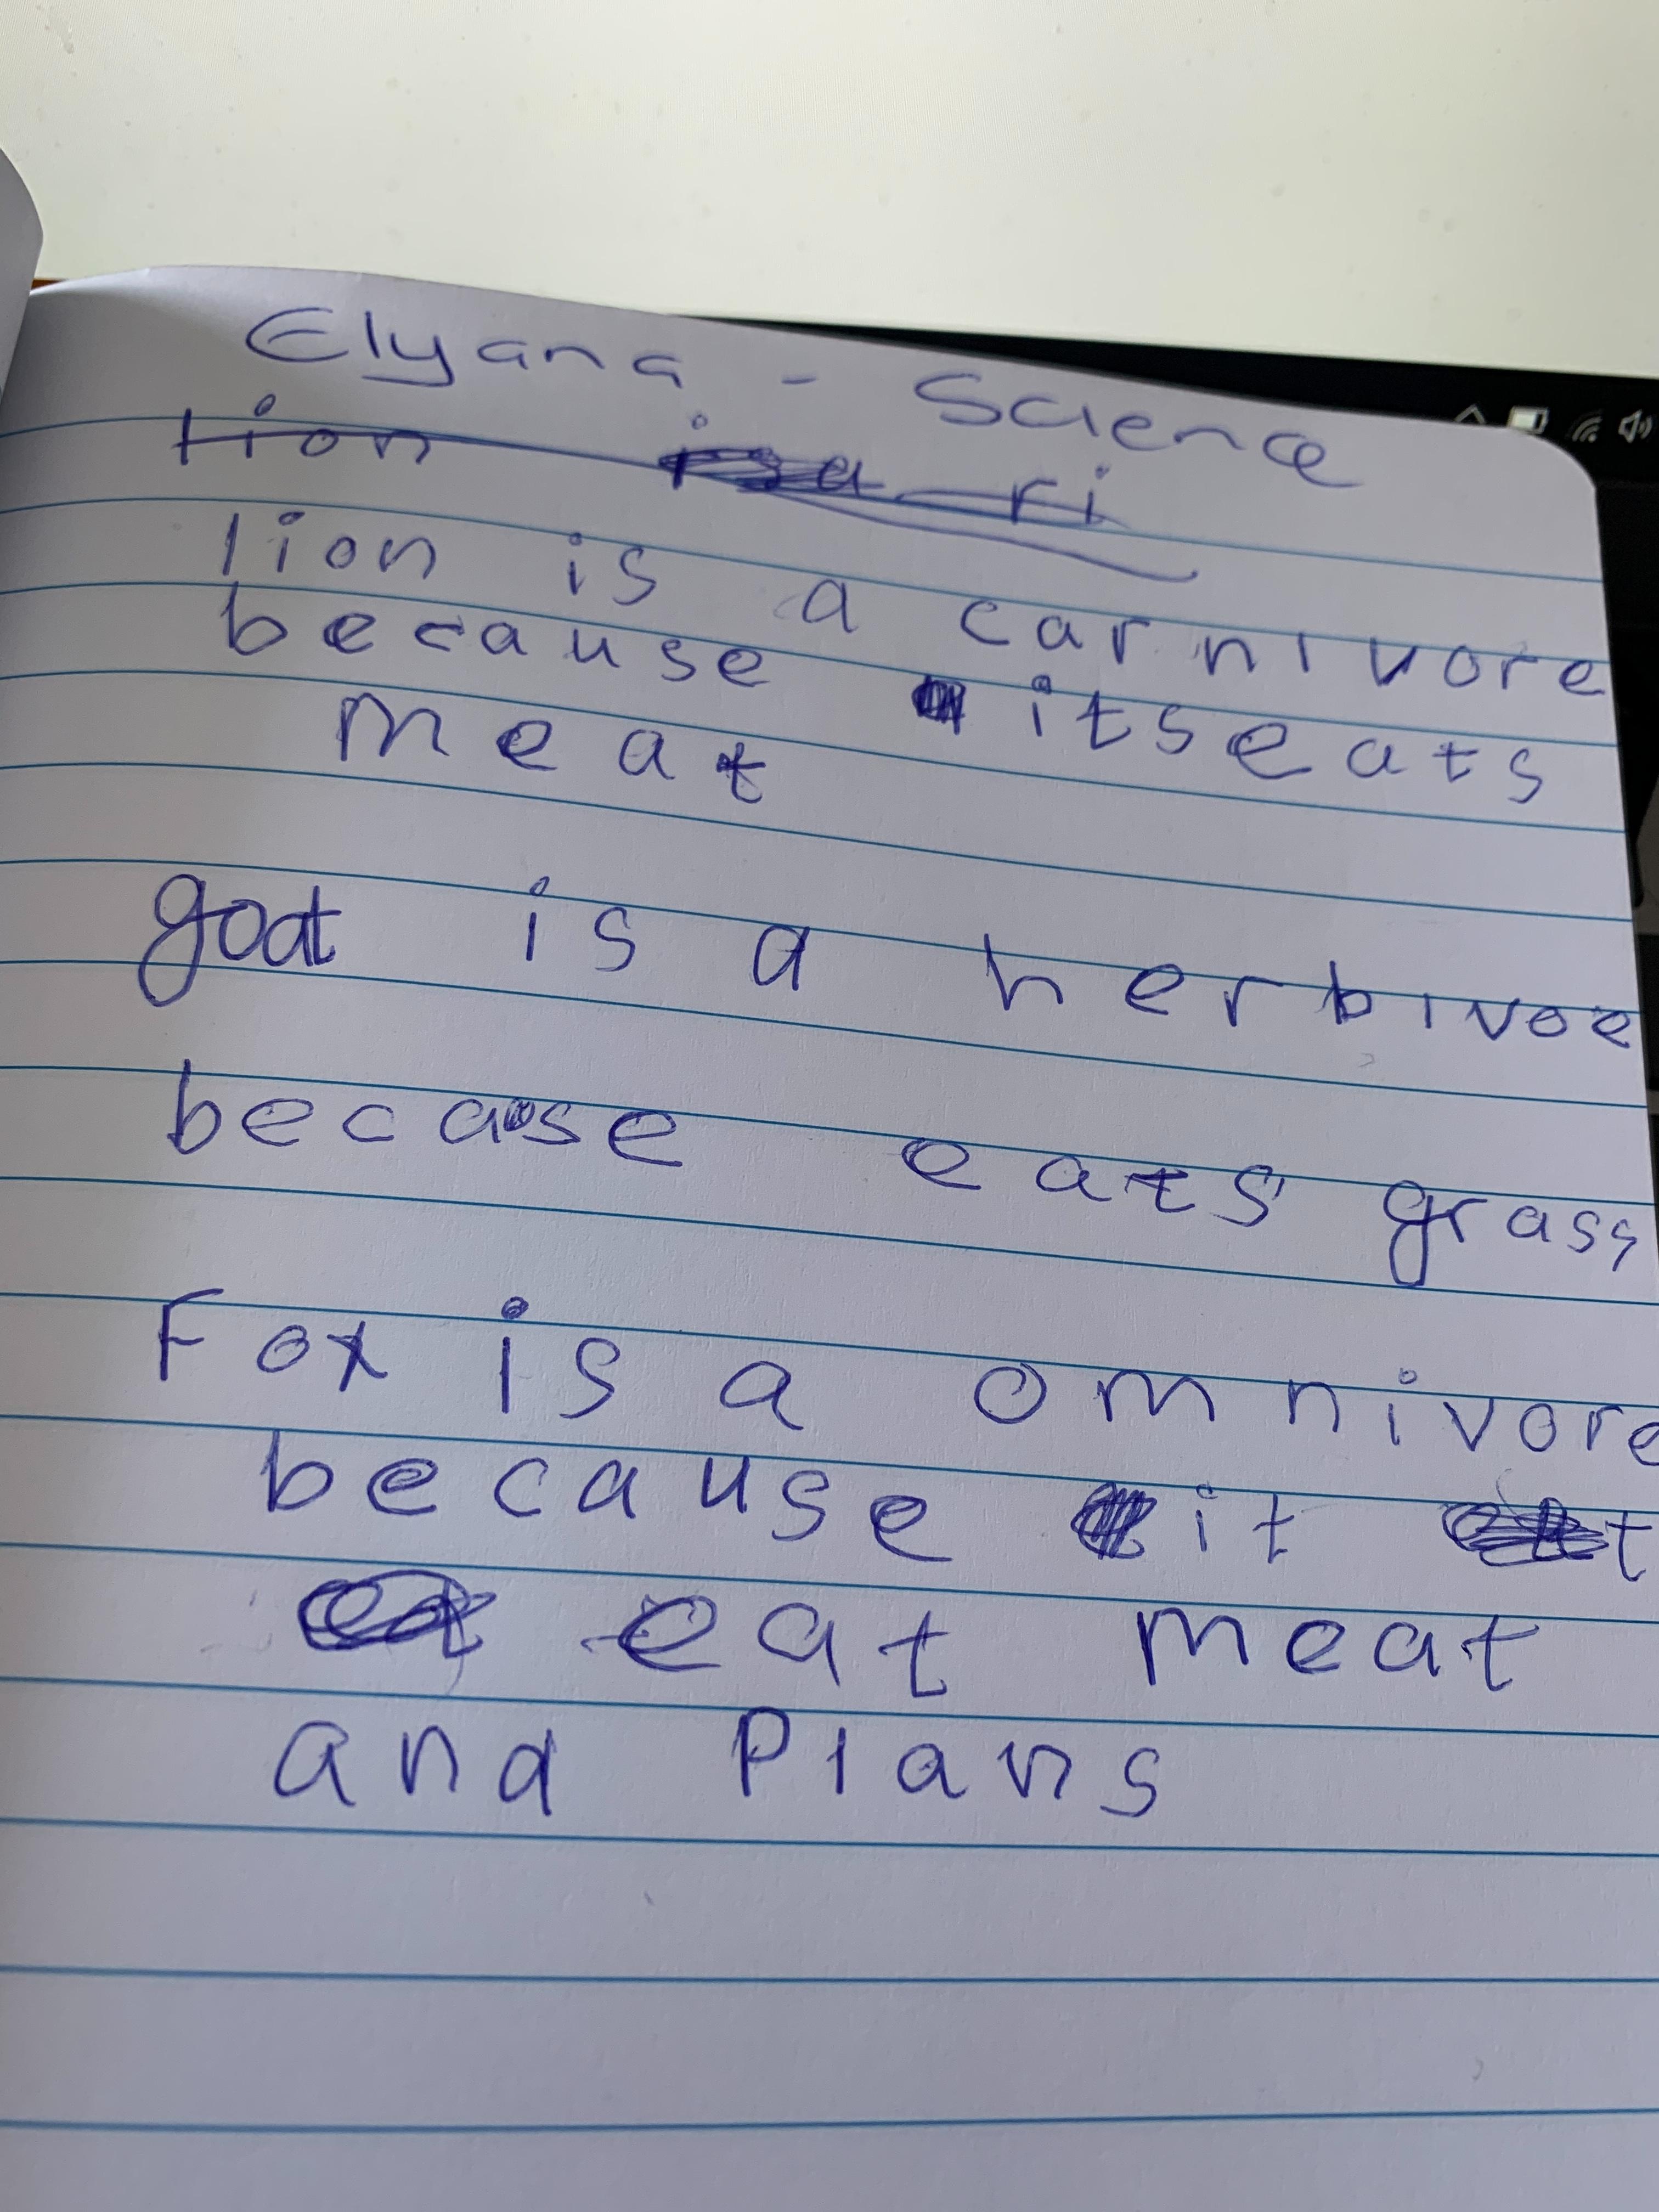 Elyana - Science
lion is a ri
lion is a carnivore
because itseats
meat
goat is a herbivoe
becaose eats grass
Fox is a omnivore
because it
eat meat
and Plans